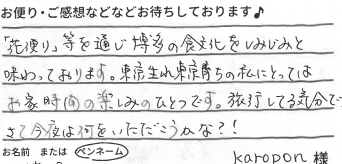 お便り・ご感想などなどお待ちしております♪
「花便り」等を通じ博多の食文化をしみじみと
味わっております。東京生れ東京育ちの私にとっては
お家時間の楽しみのひとつです。旅行してる気分で
さて今夜は何をいただこうかな?!
お名前 または ペンネーム
karopon 様